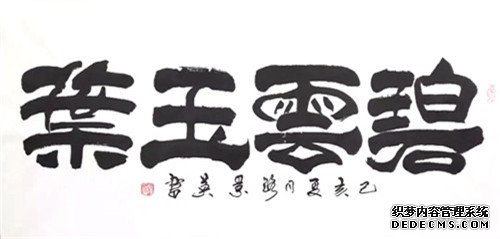 碧雲玉葉
己亥夏月 景英書
织梦内容管理系统
DEDECMS.COM